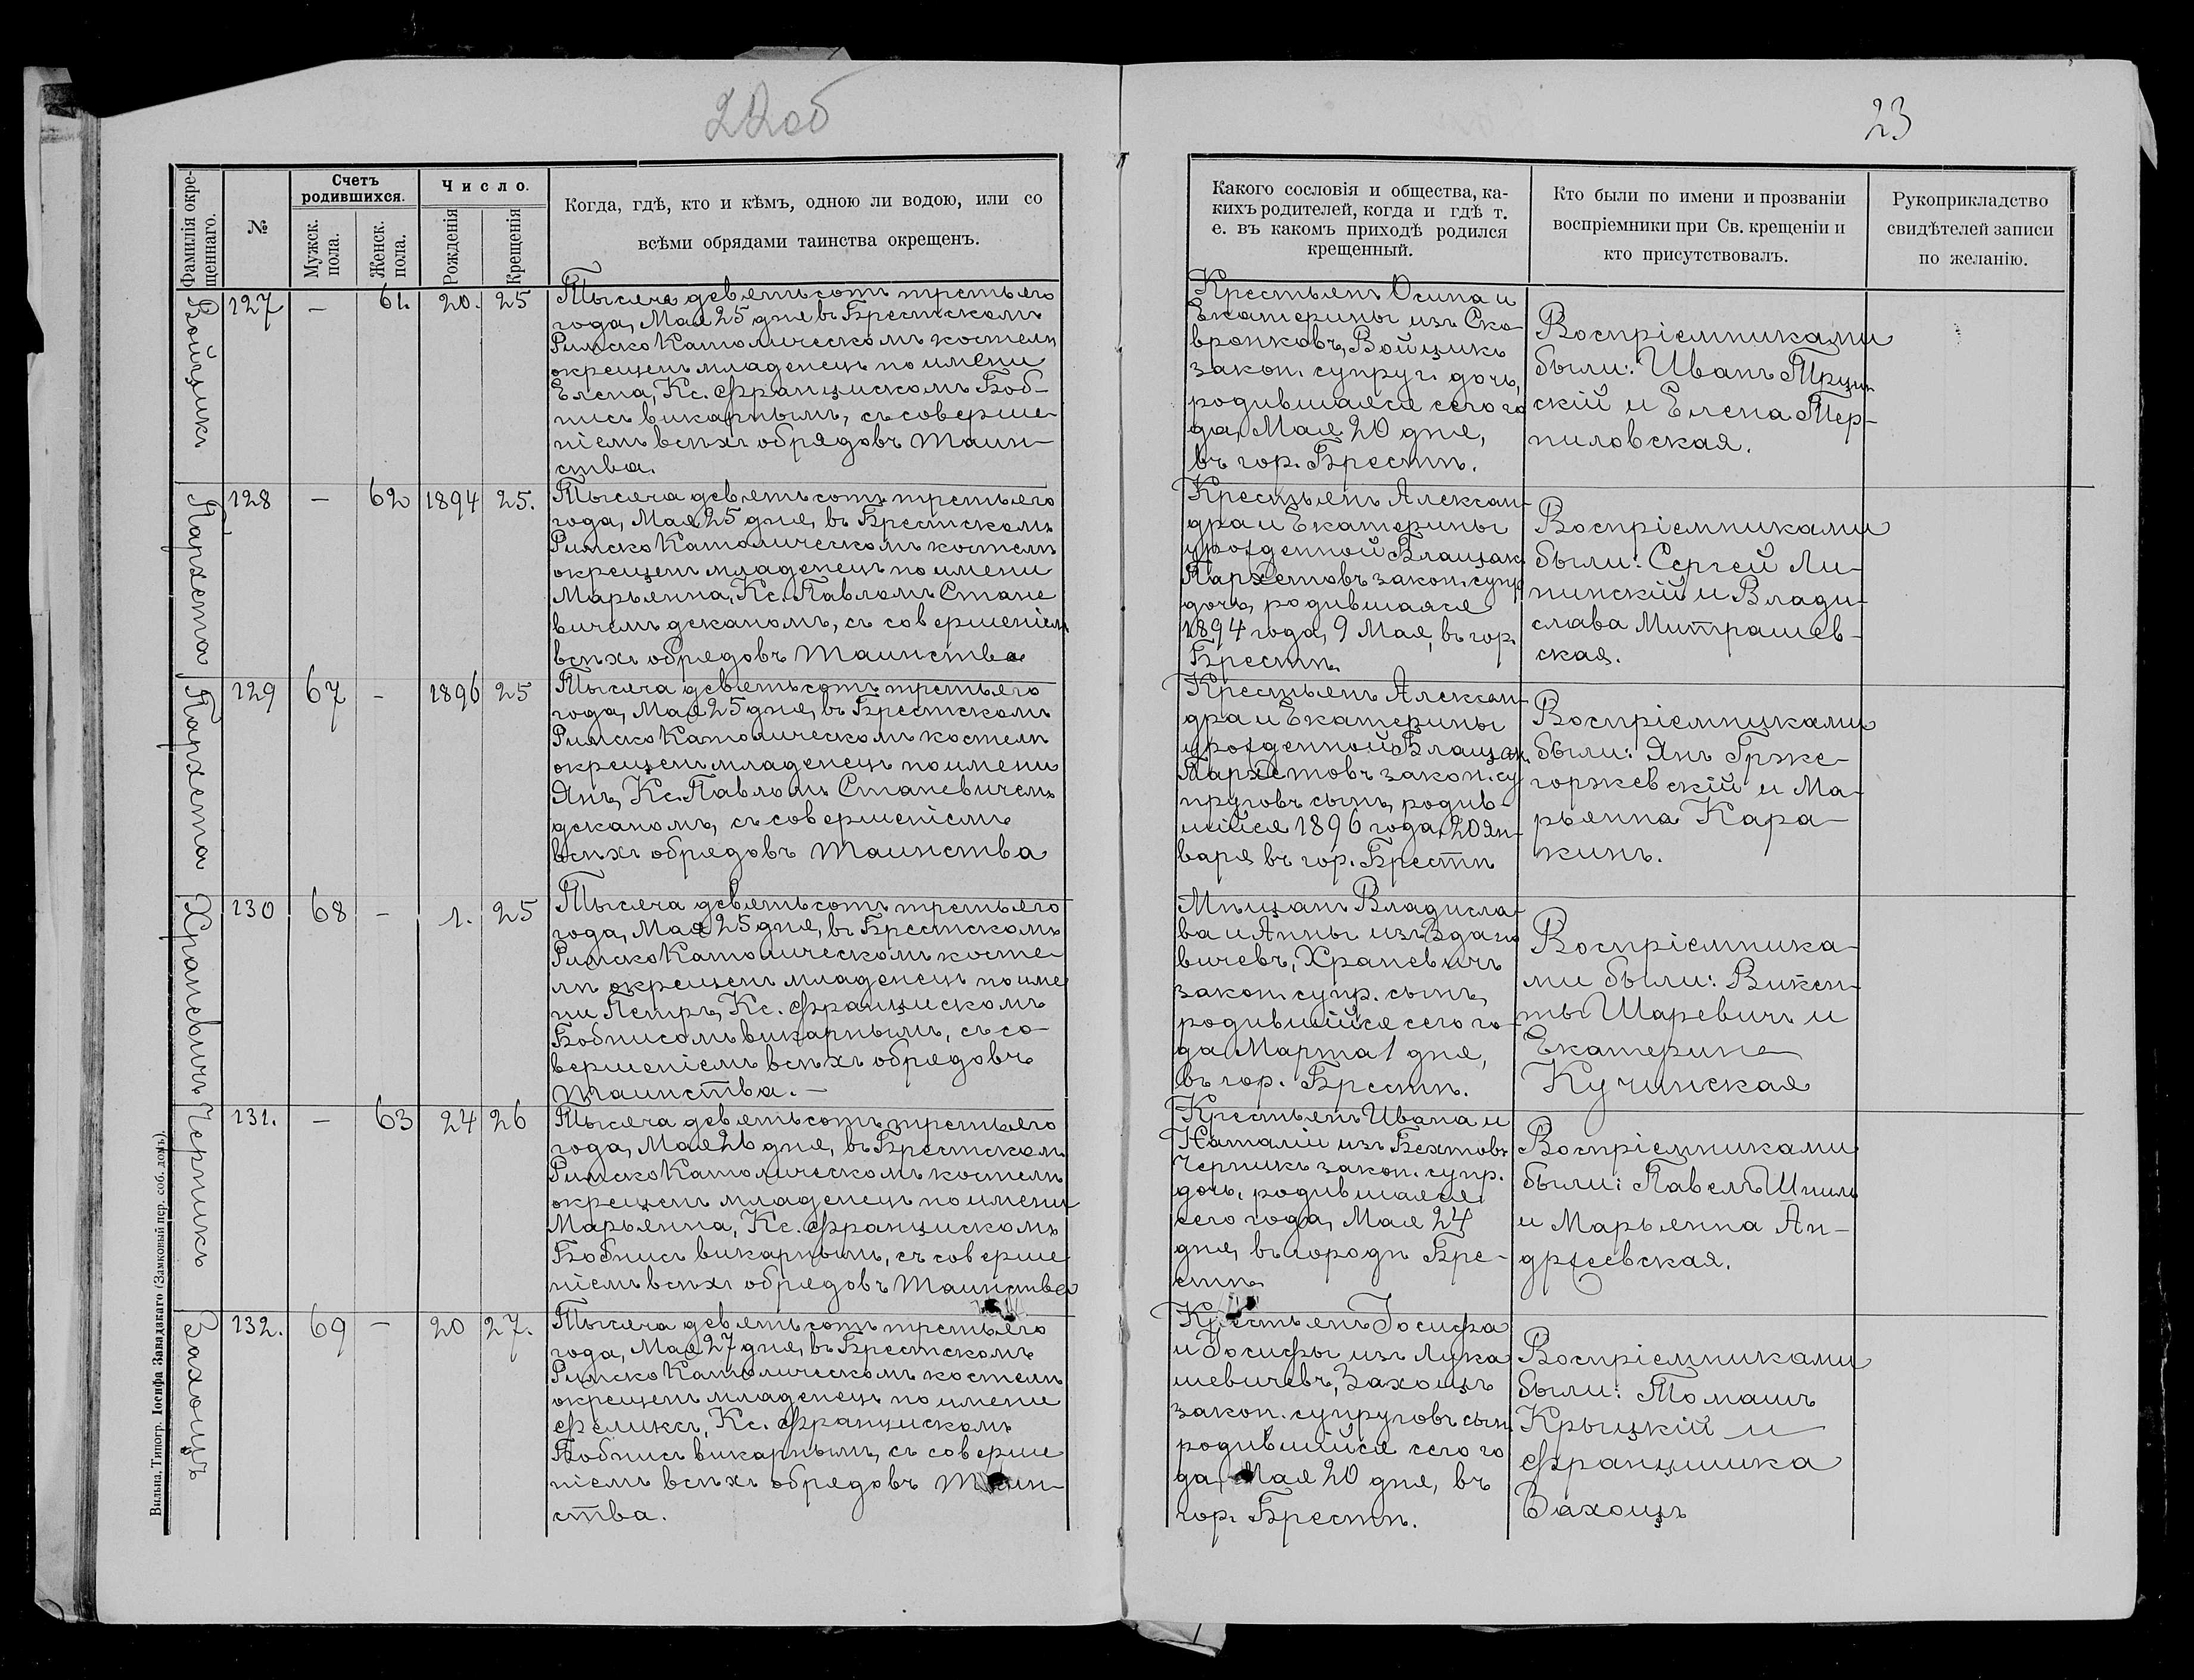 22об
23
Фамилія окре-
щеннаго.
№
Счетъ
родившихся.
Мужск.
пола.
Женск.
пола.
Число.
Рожденія
Крещенія
Когда, гдѣ, кто и кѣмъ, одною ли водою, или со
всѣми обрядами таинства окрещенъ.
Какого сословія и общества, ка-
кихъ родителей, когда и гдѣ т.
е. въ какомъ приходѣ родился
крещенный.
Кто были по имени и прозваніи
воспріемники при Св. крещеніи и
кто присутствовалъ.
Рукоприкладство
свидѣтелей записи
по желанію.
Войцикъ
127 – 61. 20. 25
Тысяча девятьсотъ третьяго
года, Мая 25 дня въ Брестскомъ
Римско Католическомъ костелѣ
окрещенъ младенецъ по имени
Елена, Кс. Францискомъ Боб-
нисъ викарнымъ, съ соверше-
ніемъ всѣхъ обрядовъ Таин-
ства.
Крестьянъ Осипа и
Екатерины изъ Ско-
вронковъ, Войцикъ
закон. супруг. дочь,
родившаяся сего го
да, Мая 20 дня,
въ гор. Брестѣ.
Воспріемниками
были: Иванъ Трцин
скій и Елена Тер-
пиловская.
Пархета
128 – 62 1894 25.
Тысяча девятьсотъ третьяго
года, Мая 25 дня, въ Брестскомъ
Римско Католическомъ костелѣ
окрещенъ младенецъ по имени
Марьянна, Кс. Павломъ Стане
вичемъ деканомъ, съ совершеніемъ
всѣхъ обрядовъ Таинства
Крестьянъ Алексан-
дра и Екатерины
урожденной Блащак
Пархетовъ закон. супр
дочь, родившаяся
1894 года, 9 Мая, въ гор.
Брестѣ.
Воспріемниками
были: Сергей Ли-
пинскій и Влади-
слава Митрашев-
ская.
Пархета
129 67 – 1896 25
Тысяча девятьсотъ третьяго
года, Мая 25 дня, въ Брестскомъ
Римско Католическомъ костелѣ
окрещенъ младенецъ по имени
Янъ, Кс. Павломъ Станевичемъ
деканомъ, съ совершеніемъ
всѣхъ обрядовъ Таинства
Крестьянъ Алексан-
дра и Екатерины
урожденной Блащак.
Пархетовъ закон. су
пруговъ сынъ, родив-
шійся 1896 года, 20 Ян-
варя въ гор. Брестѣ
Воспріемниками
были: Янъ Грже-
горжевскій и Ма-
рьянна Кара-
кинъ.
Храневичъ
130 68 – 1. 25
Тысяча девятьсотъ третьяго
года, Мая 25 дня, въ Брестскомъ
Римско Католическомъ косте-
лѣ окрещенъ младенецъ по име
ни Петръ, Кс. Францискомъ
Бобнисомъ викарнымъ, съ со-
вершеніемъ всѣхъ обрядовъ
Таинства. –
Мѣщанъ Владисла-
ва и Анны изъ Здано
вичевъ, Храневичъ
закон. супр. сынъ,
родившійся сего го-
да Марта 1 дня,
въ гор. Брестѣ.
Воспріемника-
ми были: Викен-
ты Шаревичъ и
Екатерина
Кучинская
Черникъ
131. – 63 24 26
Тысяча девятьсотъ третьяго
года, Мая 26 дня, въ Брестскомъ
Римско Католическомъ костелѣ
окрещенъ младенецъ по имени
Марьянна, Кс. Францискомъ
Бобнисъ викарнымъ, съ соверше
ніемъ всѣхъ обрядовъ Таинства
Крестьянъ Ивана и
Наталіи изъ Бехтовъ
Черникъ закон. супр.
дочь, родившаяся
сего года, Мая 24
дня, въ городѣ Бре-
стѣ
Воспріемниками
были: Павелъ Шпиль
и Марьянна Ан-
држеевская.
Захощъ
132. 69 – 20 27.
Тысяча девятьсотъ третьяго
года, Мая 27 дня, въ Брестскомъ
Римско Католическомъ костелѣ
окрещенъ младенецъ по имени
Феликсъ, Кс. Францискомъ
Бобнисъ викарнымъ, съ соверше
ніемъ всѣхъ обрядовъ Таин-
ства.
Крестьянъ Іосифа
и Іосифы изъ Лука
шевичевъ, Захощъ
закон. супруговъ сынъ
родившійся сего го
да, Мая 20 дня, въ
гор. Брестѣ.
Воспріемниками
были: Томашъ
Крыцкій и
Францишка
Захощъ
Вильна, Типогр. Іосифа Завадзкаго (Замковый пер. соб. домъ).